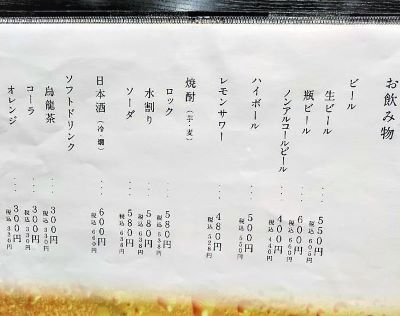 お飲み物
ビール
生ビール ... 550円
税込 605円
瓶ビール ... 600円
税込 660円
ノンアルコールビール ... 400円
税込 440円
ハイボール ... 500円
税込 550円
レモンサワー ... 480円
税込 528円
焼酎（芋・麦）
ロック ... 580円
税込 638円
水割り ... 580円
税込 638円
ソーダ ... 580円
税込 638円
日本酒（冷・燗） ... 600円
税込 660円
ソフトドリンク
烏龍茶 ... 300円
税込 330円
コーラ ... 300円
税込 330円
オレンジ ... 300円
税込 330円